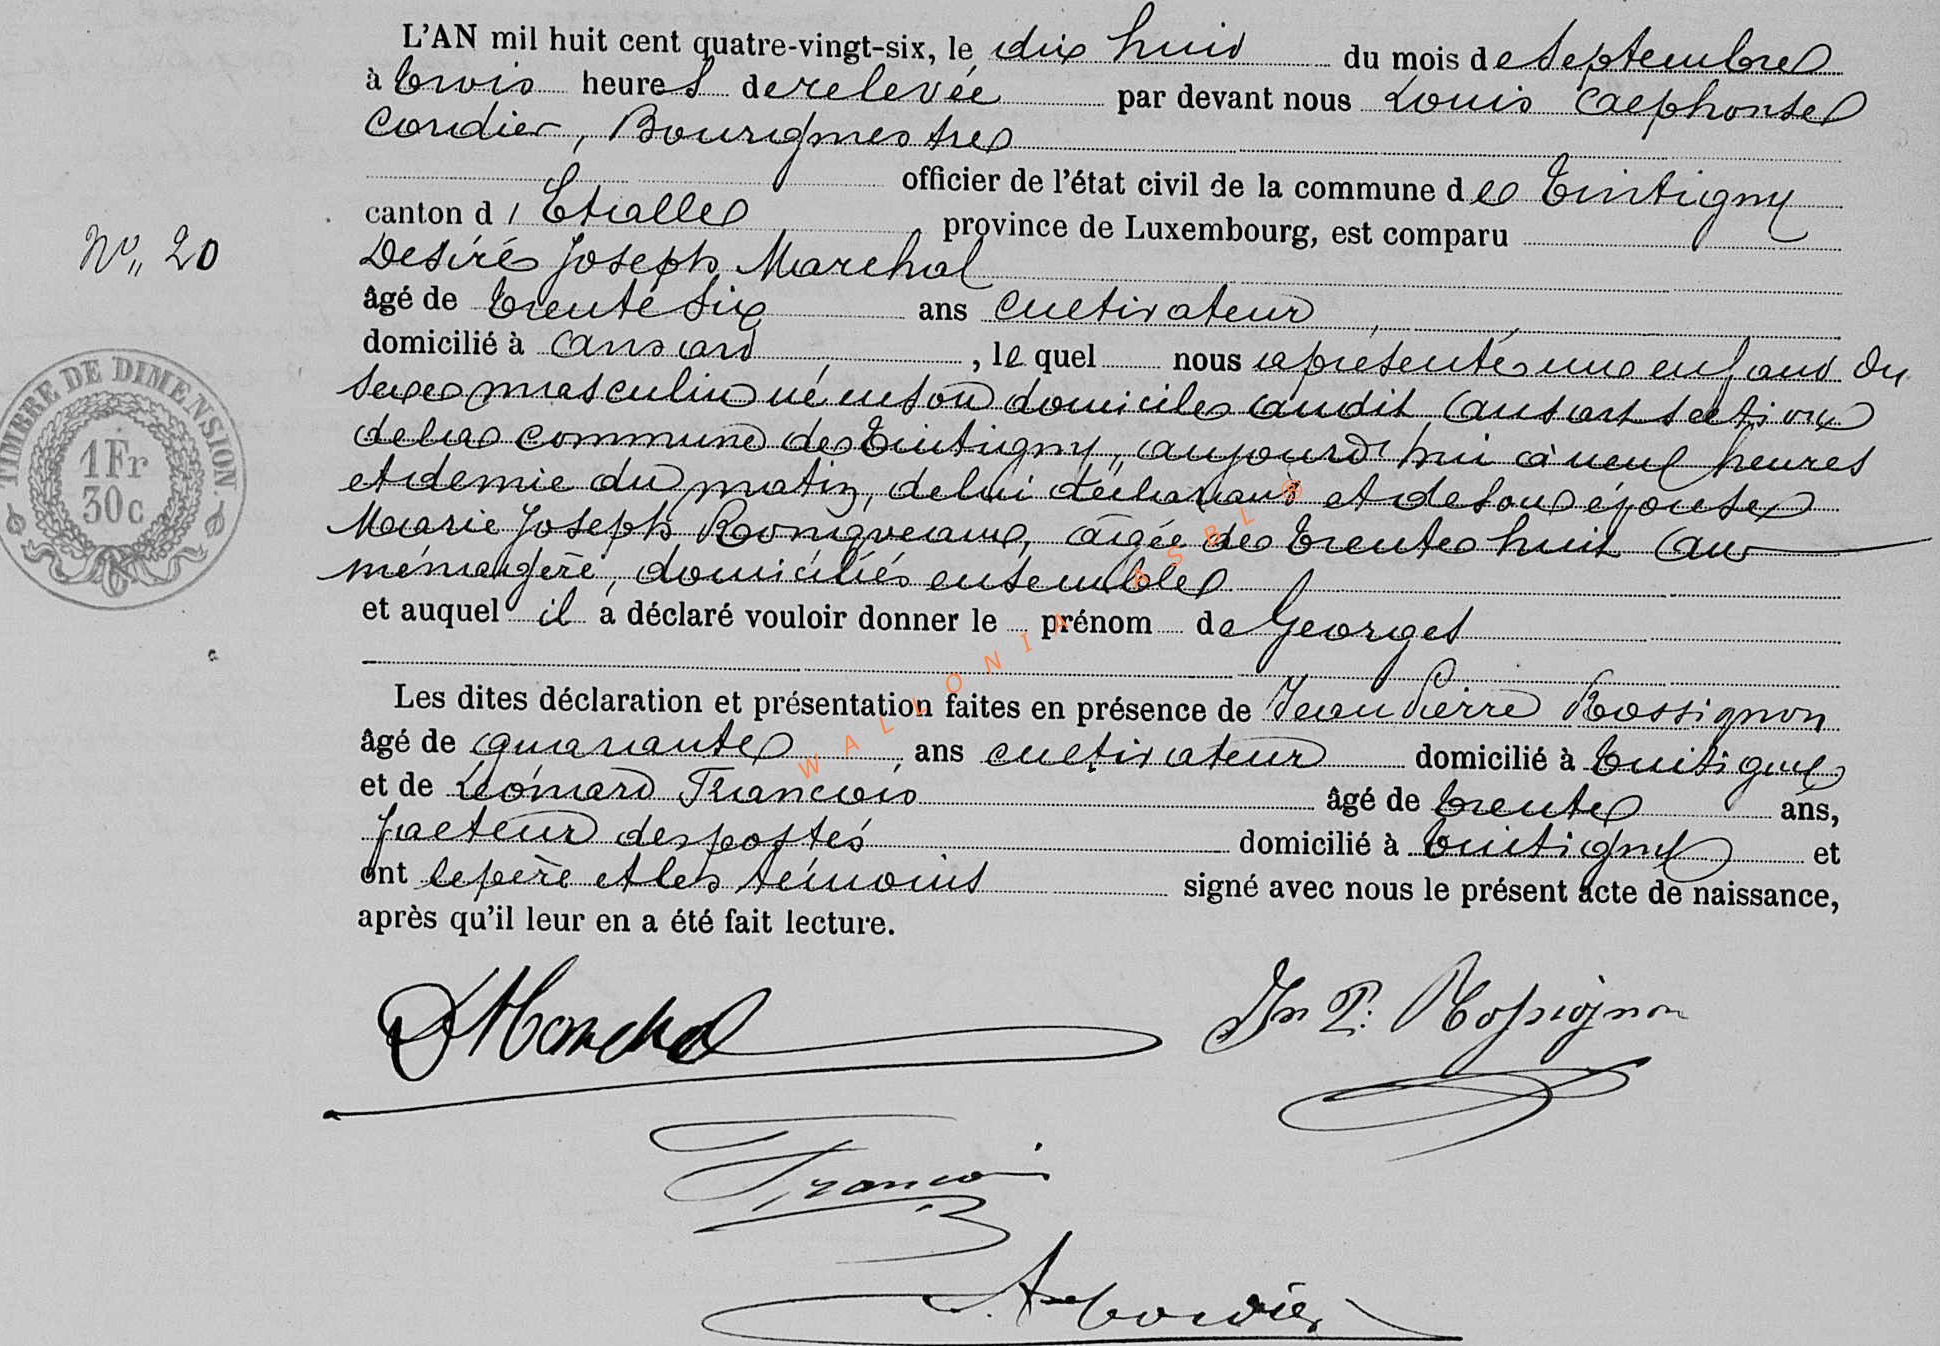 L'AN mil huit cent quatre-vingt-six, le dix huit du mois de Septembre
à trois heures de relevée par devant nous Louis Alphonse
Cordier, Bourgmestre
officier de l'état civil de la commune de Tintigny
canton d'Etalle province de Luxembourg, est comparu
N° 20
Désiré Joseph Marchal
âgé de trente six ans cultivateur
domicilié à Ansart, le quel nous a présenté un enfant du
sexe masculin né en son domicile audit Ansart section
de la commune de Tintigny, aujourd'hui à neuf heures
et demie du matin, de lui déclarant et de son épouse
Marie Joseph Rongveaux, âgée de trente huit ans
ménagère, domiciliés ensemble
et auquel il a déclaré vouloir donner le prénom de Georges
Les dites déclaration et présentation faites en présence de Jean Pierre Rossignon
âgé de quarante ans cultivateur domicilié à Tintigny
et de Léonard François âgé de trente ans,
facteur des postes domicilié à Tintigny et
ont le père et les témoins signé avec nous le présent acte de naissance,
après qu'il leur en a été fait lecture.
TIMBRE DE DIMENSION.
1 Fr
30 c
WALLONIA ASBL ®
D Marchal
Jn P. Rossignon
François
A Cordier